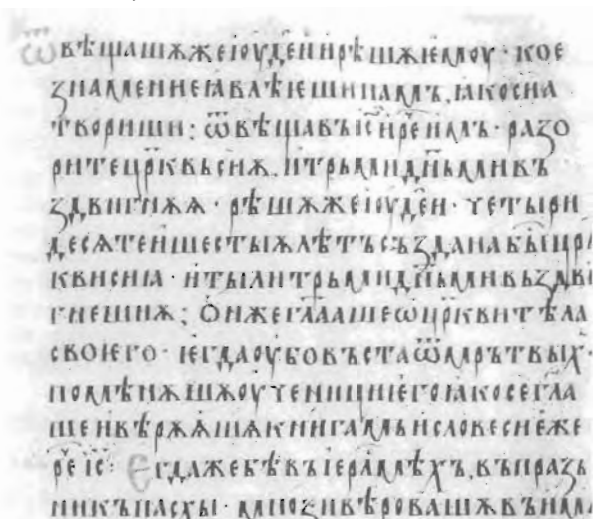 ѿвѣщашѫжеіоудеиирѣшѫіемоу · кое
знамениеꙗвлѣіешинамъ, ꙗкосиꙗ
твориши: ѿвѣщавъіс҃иреч҇имъ · разо
ритецр҃квьсиѫ, итрьмидн҃ьмивъ
здвигнѫѫ · рѣшѫжеіоудеи · четыри
десѧтеишестыѫлѣтъсъзданабы҇цр҃
квисиꙗ · итылитрьмидн҃ьмивьздви
гнешиѫ; ѻнжегл҃аашеѡцр҃квитѣла
своіего · ѥгдаоубовъстаѿмрътвых ·
помѣнѫшѫоученициіегоꙗкосегл҃а
шеивѣрѫѧшѧкнигамьисловесиеже
реч҇іс҃: Егдажебѣвъіер҃лмѣхъ, въпразь
никъпасхы · мнозивѣровашѫвъимѧ